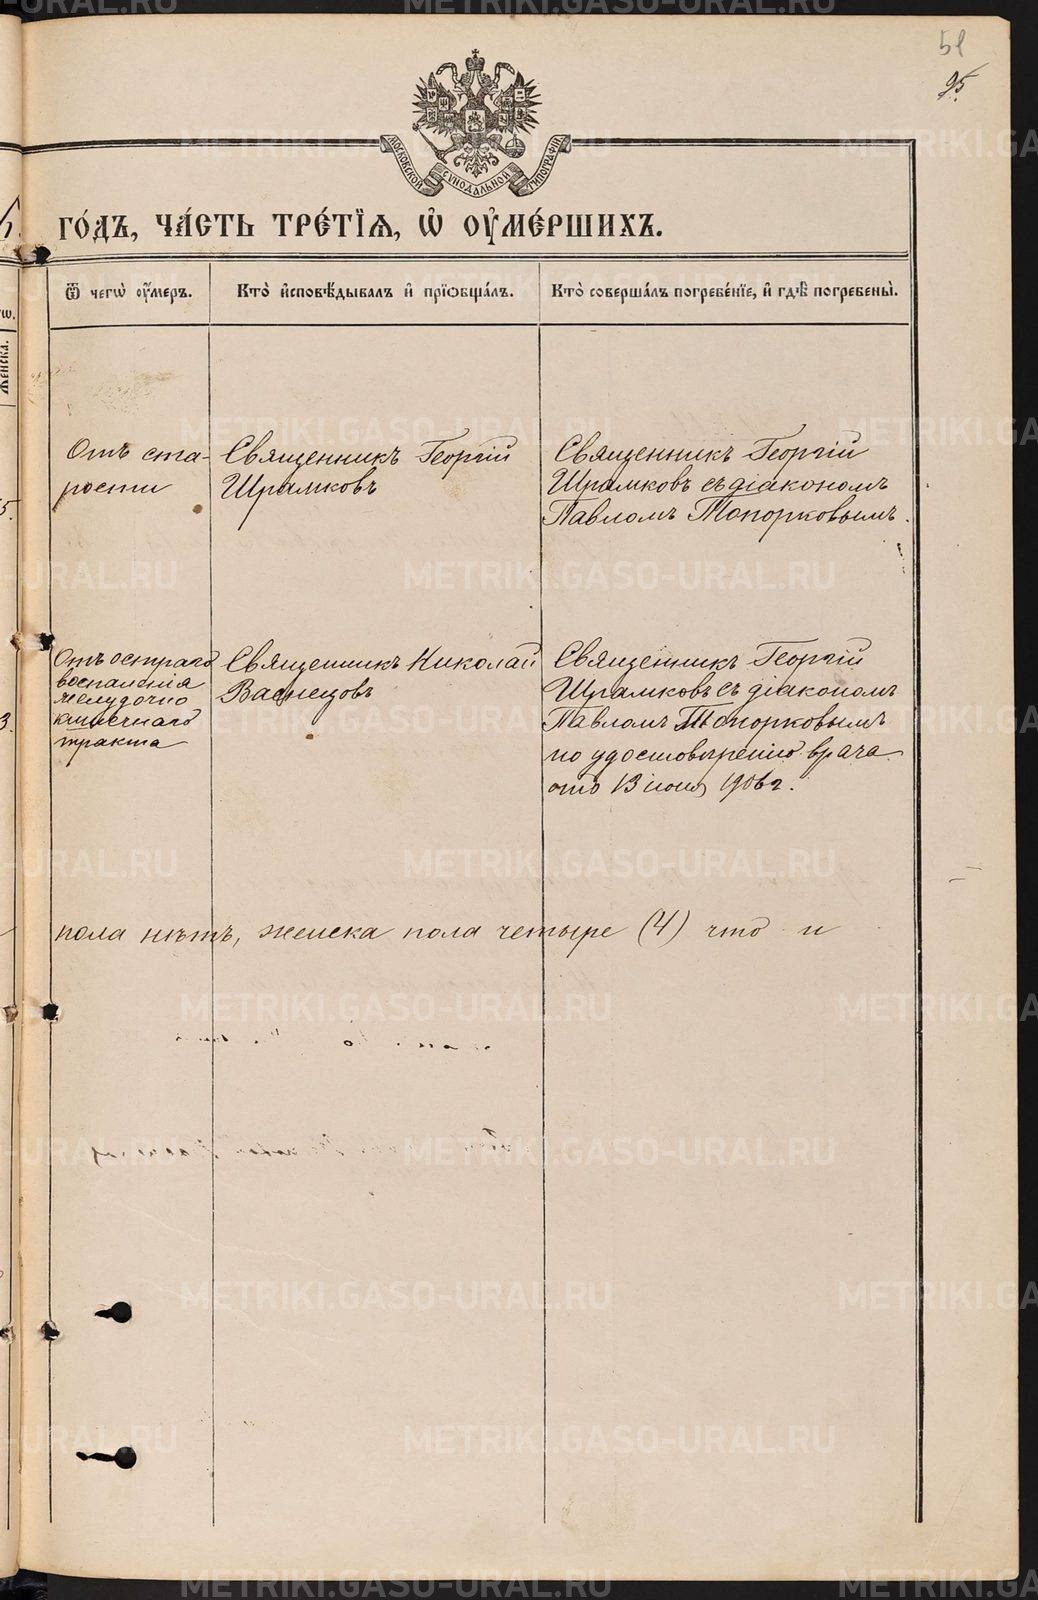 51
95.
МОСКОВСКОЙ СѴНОДАЛЬНОЙ ТИПОГРАФІИ
го́дъ, ча́сть тре́тїѧ, ѡ҆ ᲂу҆ме́ршихъ.
Ѿ чегѡ̀ ᲂу҆́меръ.
Кто̀ и҆сповѣ́дывалъ и҆ прїѡбща́лъ.
Кто̀ соверша́лъ погребе́нїе, и҆ гдѣ̀ погребены̀.
Же́нска.
Отъ ста-
рости
Священникъ Георгій
Шрамковъ
Священникъ Георгій
Шрамковъ съ діакономъ
Павломъ Топорковымъ.
Отъ остраго
воспаленія
желудочно
кишечнаго
тракта
Священникъ Николай
Васнецовъ
Священникъ Георгій
Шрамковъ съ діакономъ
Павломъ Топорковымъ
по удостовѣренію врача
отъ 13 іюня 1906 г.
пола нѣтъ, женска пола четыре (4) что и
METRIKI.GASO-URAL.RU